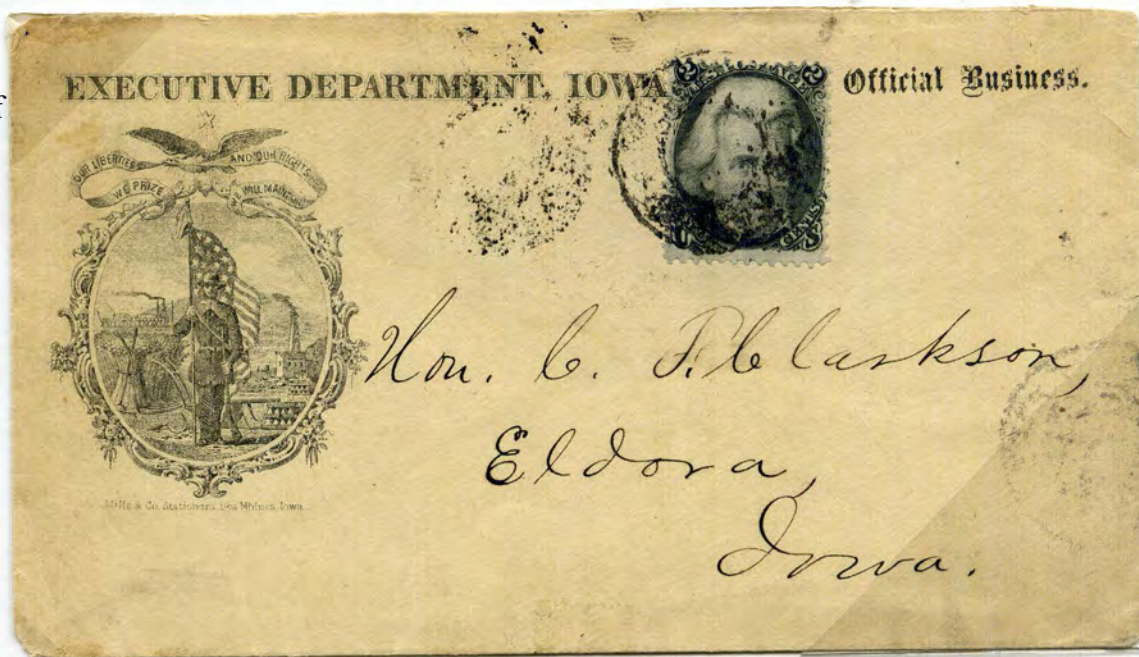 EXECUTIVE DEPARTMENT, IOWA
Official Business.
OUR LIBERTIES WE PRIZE AND OUR RIGHTS WE WILL MAINTAIN
Mills & Co. Stationers, Des Moines, Iowa.
Hon. C. F. Clarkson,
Eldora,
Iowa.
f